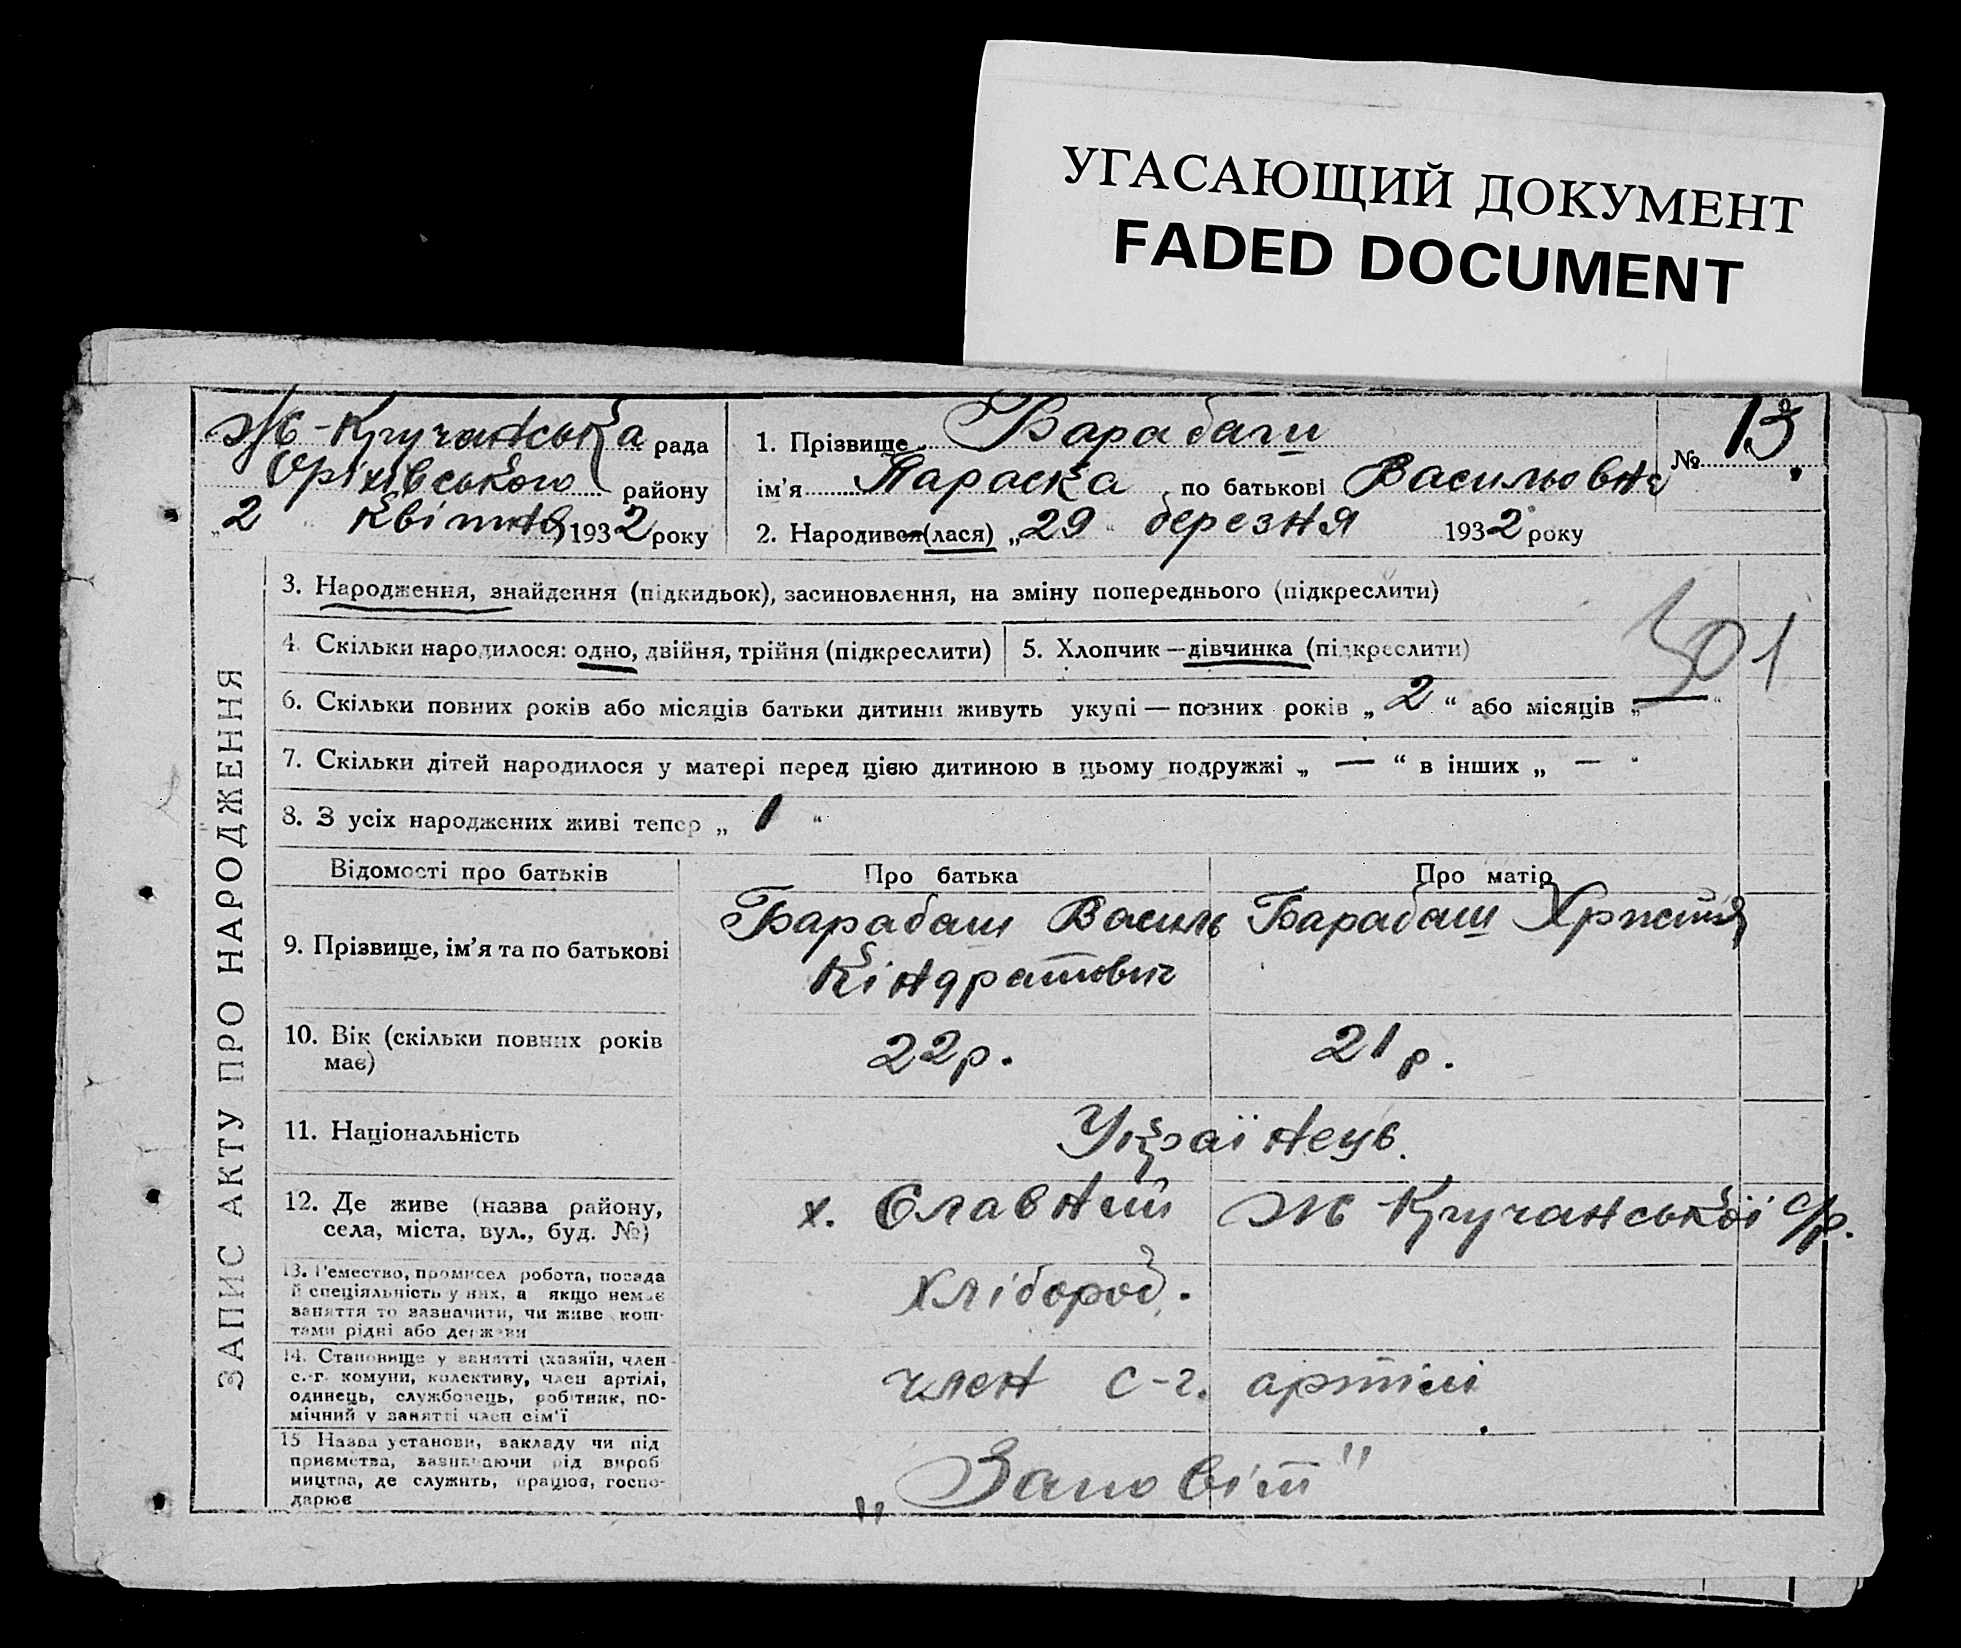 УГАСАЮЩИЙ ДОКУМЕНТ
FADED DOCUMENT
Ж-Кручанська рада
Оріхівського району
„2“ Квітня 1932 року
1. Прізвище Барабаш
ім’я Параска по батькові Васильовна
2. Народився (лася) „29“ березня 1932 року
№ 13.
ЗАПИС АКТУ ПРО НАРОДЖЕННЯ
3. Народження, знайдення (підкидьок), засиновлення, на зміну попереднього (підкреслити)
301
4. Скільки народилося: одно, двійня, трійня (підкреслити)
5. Хлопчик — дівчинка (підкреслити)
6. Скільки повних років або місяців батьки дитини живуть укупі — повних років „2“ або місяців „—“
7. Скільки дітей народилося у матері перед цією дитиною в цьому подружжі „—“ в інших „—“
8. З усіх народжених живі тепер „1“
Відомості про батьків Про батька Про матір
9. Прізвище, ім’я та по батькові
Барабаш Василь
Кіндратович
Барабаш Христя
10. Вік (скільки повних років
має)
22 р. 21 р.
11. Національність
Українець.
12. Де живе (назва району,
села, міста, вул., буд. №)
х. Славний Ж-Кручанської с/р.
13. Ремество, промисел робота, посада
й спеціяльність у них, а якщо немає
заняття то зазначити, чи живе кош-
тами рідні або держави
Хлібороб.
14. Становище у занятті (хазяїн, член
с.-г. комуни, колективу, член артілі,
одинець, службовець, робітник, по-
мічний у занятті член сім’ї
член с-г. артілі.
15 Назва установи, закладу чи під
приємства, зазначаючи рід вироб
ництва, де служить, працює, госпо-
дарює
„Заповіт“